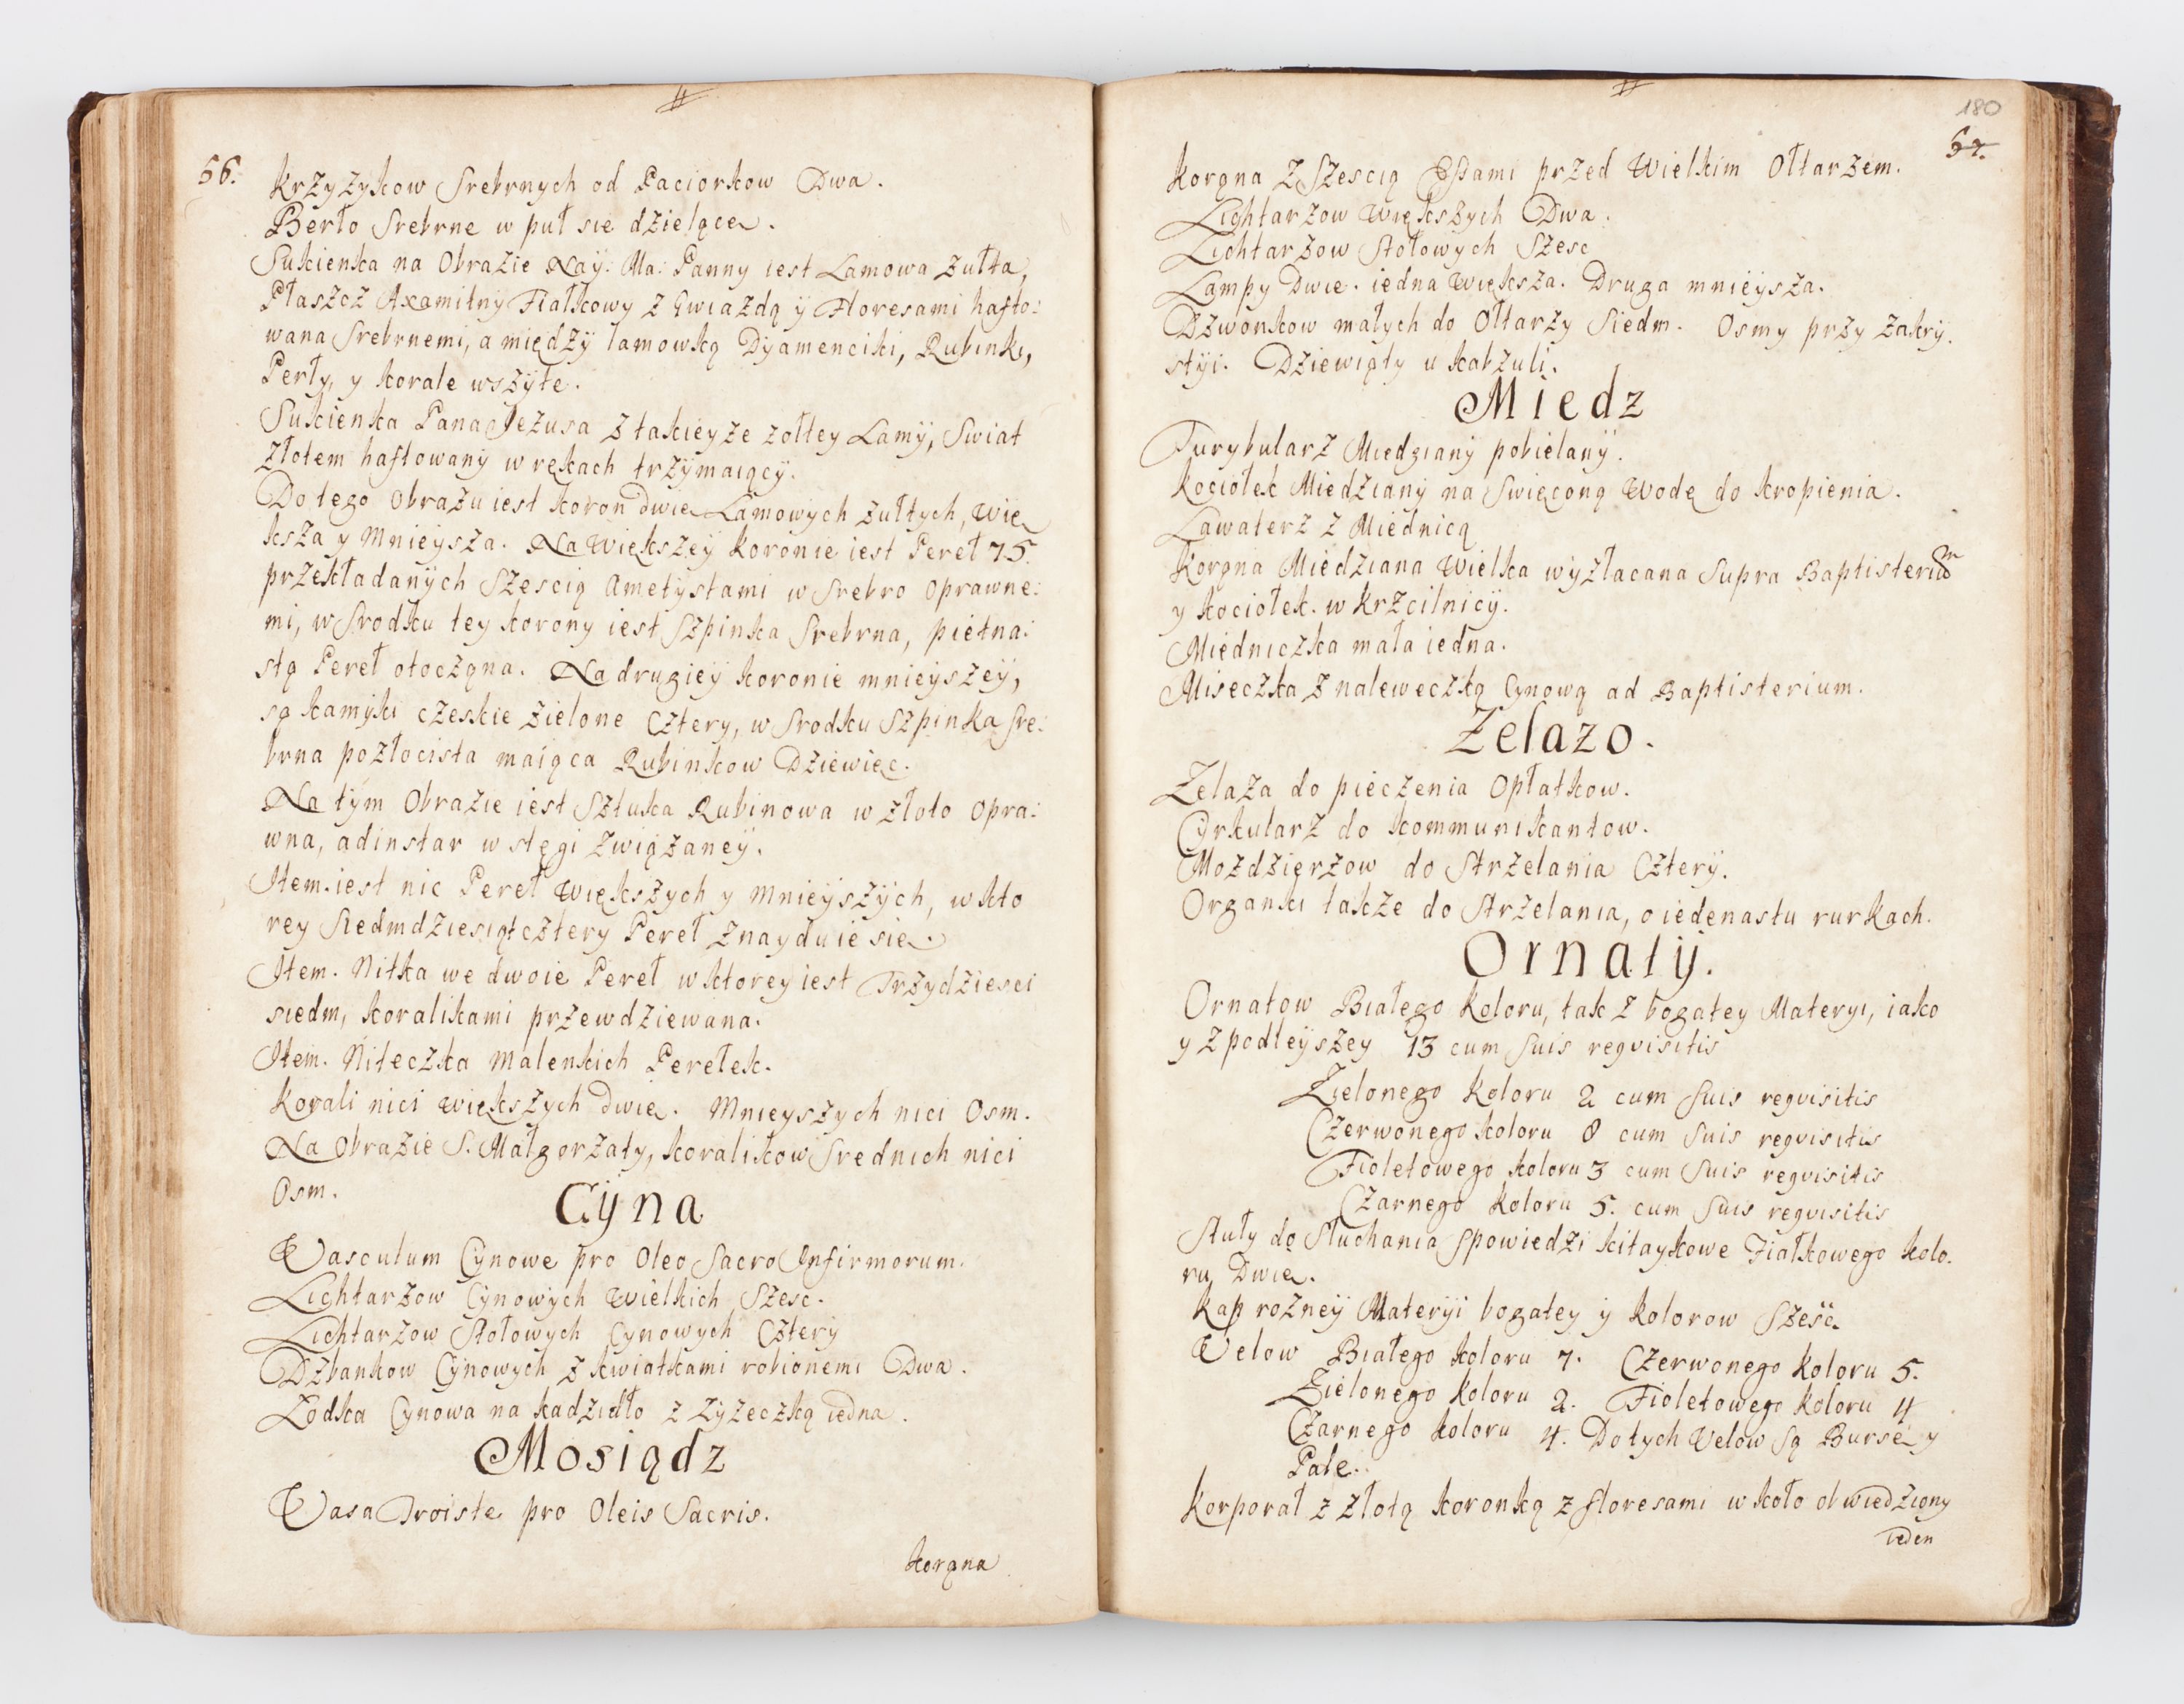 56.
Krzyzykow Srebrnych od Paciorkow Dwa.
Berło Srebrne w puł sie dzielące.
Sukienka na Obrazie Nay: Ma: Panny iest Lamowa zułta,
Płaszcz Axamitny Fiałkowy z Gwiazdą ÿ Floresami hafto:
wana Srebrnemi, a międzÿ lamowką Dÿamenciki, Rubinki,
Perły, y korale wszÿte.
Sukienka Pana Jezusa z takieyze zołtey Lamÿ, Swiat
złotem haftowanÿ w rękach trzÿmaiącÿ.
Do tego Obrazu iest koron dwie Lamowych zułtych, Wię
ksza y Mnieysza. Na Większeÿ koronie iest Pereł 75.
przekładanÿch Szescią Ametÿstami w Srebro Oprawne:
mi, w Srodku tey korony iest Szpinka Srebrna, piętna:
stą Pereł otocząna. Na drugieÿ koronie mnieyszeÿ,
są kamÿki czeskie zielone Cztery, w Srodku Szpinka Sre:
brna pozłocista maiąca Rubinkow Dziewięc.
Na tÿm Obrazie iest Sztuka Rubinowa w złoto Opra:
wna, adinstar wstęgi związaneÿ.
Item. iest nic Pereł Większych y Mnieÿszÿch, w kto
rey Siedmdziesiąt cztery Pereł znayduie sie.
Item. Nitka we dwoie Pereł w ktorey iest Trzydziesci
siedm, koralikami przewdziewana.
Item. Niteczka Malenkich Perełek.
Korali nici większych dwie. Mnieyszych nici Osm.
Na Obrazie S. Małgorzaty, koralikow Srednich nici
Osm.
Cÿna
Vasculum Cynowe pro Oleo Sacro Infirmorum.
Lichtarzow Cÿnowÿch Wielkich Szesc.
Lichtarzow Stołowych Cynowych Czterÿ
Dzbankow Cÿnowych z kwiatkami robionemi Dwa.
Łodka Cynowa na kadzidło z Łyzeczką iedna.
Mosiądz
Vasa Troiste pro Oleis Sacris.
korąna
180
57.
Korąna z Szescią przed Wielkim Ołtarzem.
Lichtarzow Większych Dwa.
Lichtarzow Stołowych Szesc
Lampy Dwie. iedna Większa. Druga mnieÿsza.
Dzwonkow małych do Ołtarzy Siedm. Osmy przy zakrÿ.
stÿi. Dziewiąty u kabzuli.
Miedz
Turybularz Miedzianÿ pobielanÿ.
Kociołek Miedzianÿ na Swięconą Wodę do kropienia.
Lawaterz z Miednicą
Korąna Miedziana Wielka wyzłacana Supra Baptisterium
y kociołek. w krzcilnicÿ.
Miedniczka mała iedna.
Miseczka z naleweczką Cynową ad Baptisterium.
Zelazo.
Zelaza do pieczenia Opłatkow.
Cyrkularz do kommunikantow.
Mozdzięrzow do Strzelania Czterÿ.
Organki także do Strzelania, o iedenastu rurkach.
Ornatÿ.
Ornatow Białego koloru, tak z bogatey Materyi, iako
y z podleÿszey 13 cum Suis reqvisitis
Zielonego koloru 2 cum Suis reqvisitis
Czerwonego koloru 8 cum Suis reqvisitis
Fioletowego koloru 3 cum Suis reqvisitis
Czarnego koloru 5. cum Suis reqvisitis
Stuły do Słuchania Spowiedzi kitaykowe Fiałkowego kolo.
ru Dwie.
Kap rozneÿ Materÿi bogatey ÿ kolorow Szesc.
Velow Białego koloru 7. Czerwonego koloru 5.
Zielonego koloru 2. Fioletowego koloru 4
Czarnego koloru 4. Do tych Velow są Burse y
Pale.
Korporał z złotą koronką z floresami w koło obwiedziony
ieden